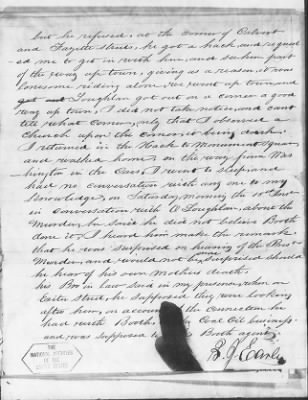 but he refused, at the corner of Calvert
and Fayette Streets, he got a hack and reques
-ed me to get in with him, and rode part
of the way up town, giving as a reason, it was
lonesome riding alone. We went up town and
O'Laughlen got out on a corner a good
way up town, I did not take notice, and cant
tell what Corner, only that I observed a
Church upon the Corner it being dark.
I returned in the Hack to Monument Square
and walked home, on the way from Was
-hington in the Cars, I went to sleep, and
had no conversation with any one to my
knowledge, on Saturday morning the 15" Inst
in conversation with O'Laughlen, about the
Murder, he said he did not believe Booth
done it, I heard him make the remark
that he was surprised on hearing of the Pres
Murder, and would not be more surprised should
he hear of his own Mothers death.
his Bro in law said in my presence, when on
Exeter street, he supposed they were looking
after him, on account of the Connection he
had with Booth, in the Coal Oil business
and was supposed to be Booth agent.
THE
NATIONAL ARCHIVES
OF THE
UNITED STATES